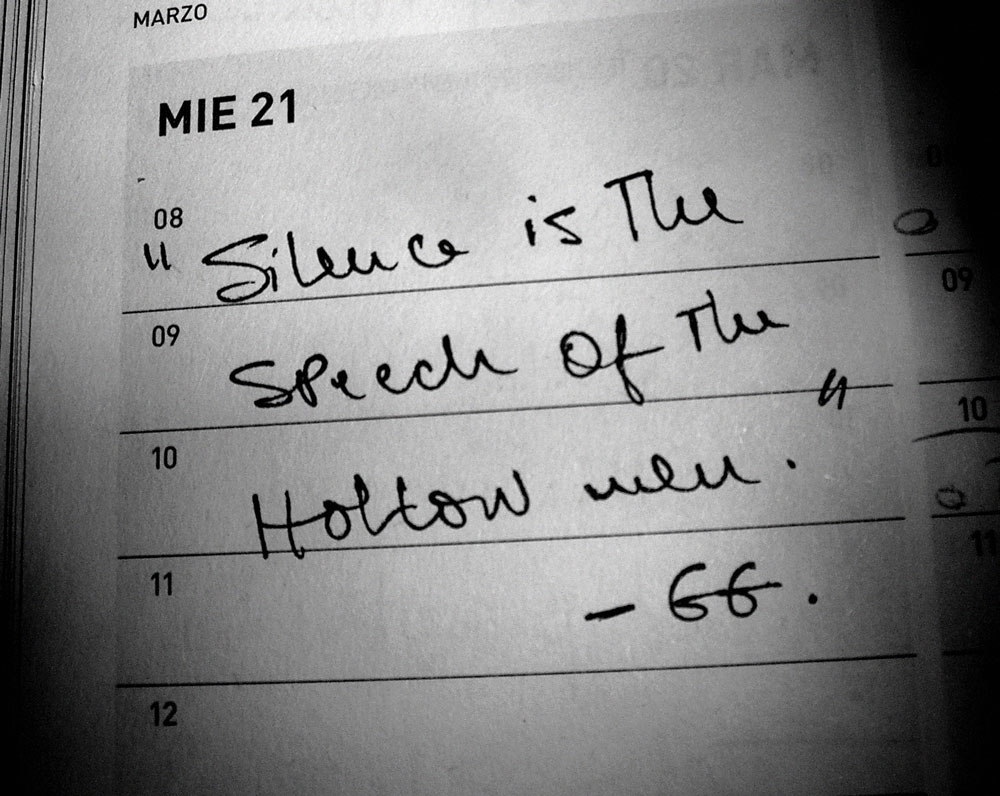 MARZO
MIE 21
08
" Silence is The
09
Speech Of The "
10
Hollow men.
11
- GG.
12
09
10
11